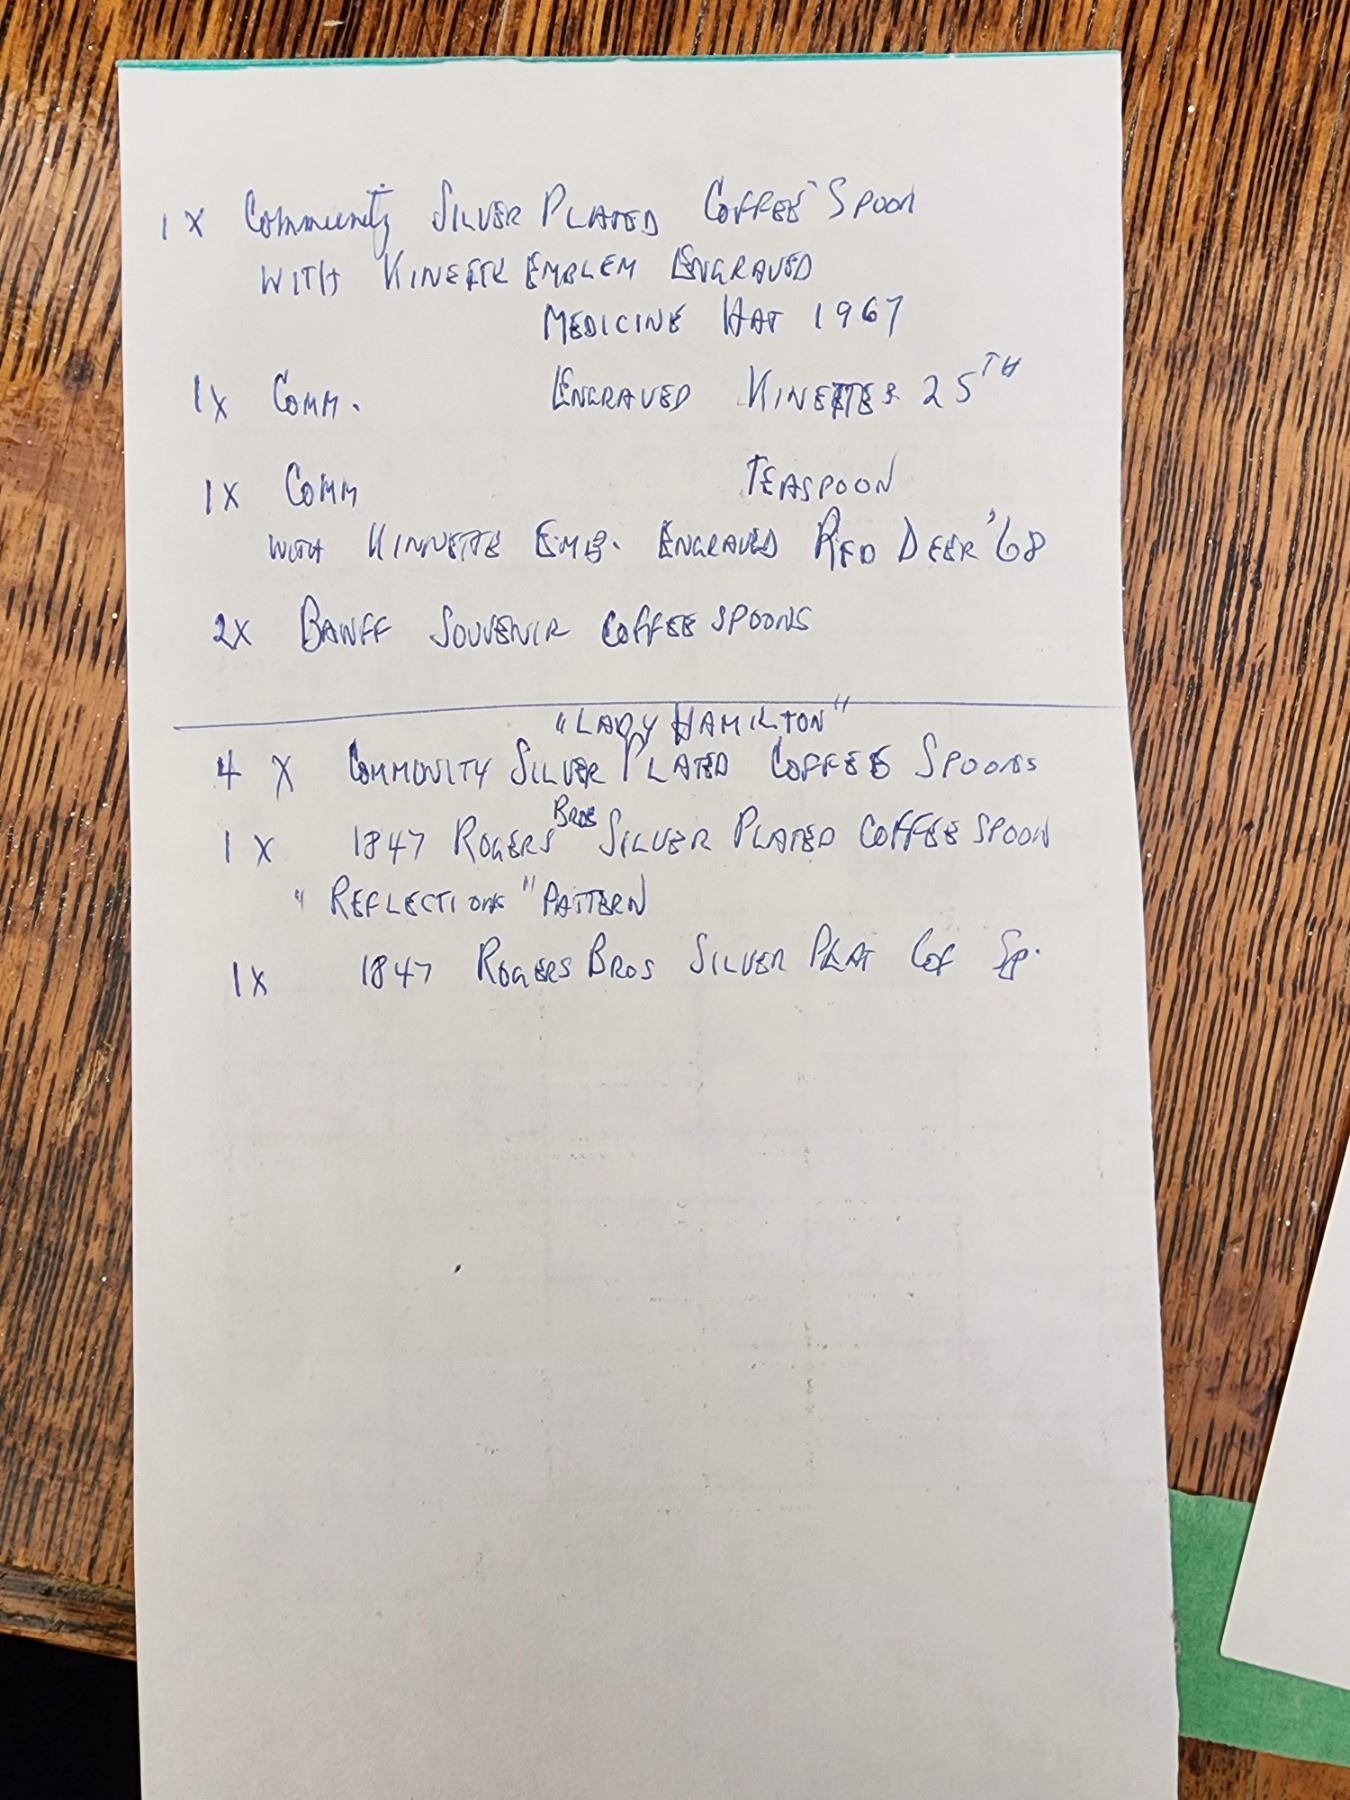 1 X Community SILVER PLATED COFFEE SPOON
WITH KINETTE EMBLEM ENGRAVED
MEDICINE HAT 1967
1X COMM. ENGRAVED KINETTES 25TH
1X COMM TEASPOON
WITH KINNETTE EMB. ENGRAVED RED DEER '68
2X BANFF SOUVENIR COFFEE SPOONS
"LADY HAMILTON"
4 X COMMUNITY SILVER PLATED COFFEE SPOONS
1 X 1847 ROGERS BROS SILVER PLATED COFFEE SPOON
"REFLECTIONS" PATTERN
1X 1847 ROGERS BROS SILVER PLAT COF SP.